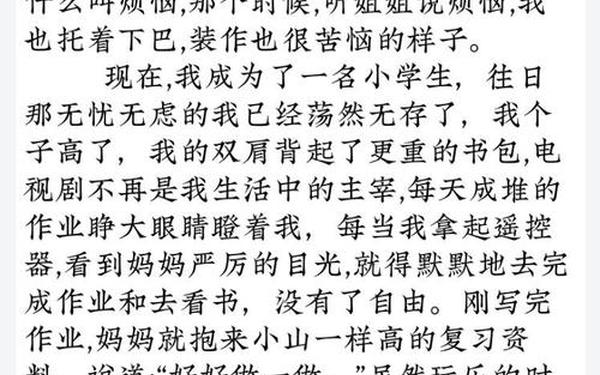 什么叫烦恼,那个时候,听姐姐说烦恼,我
也托着下巴,装作也很苦恼的样子。
现在,我成为了一名小学生，往日
那无忧无虑的我已经荡然无存了，我个
子高了，我的双肩背起了更重的书包,电
视剧不再是我生活中的主宰,每天成堆的
作业睁大眼睛瞪着我，每当我拿起遥控
器,看到妈妈严厉的目光,就得默默地去完
成作业和去看书，没有了自由。刚写完
作业,妈妈就抱来小山一样高的复习资
料，说道:“好好做一做。”虽然玩乐的时